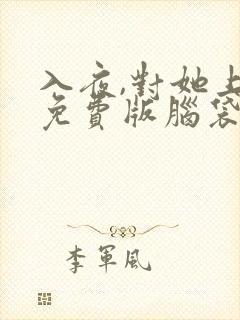 入夜,對她上
免費版腦袋
李軍風